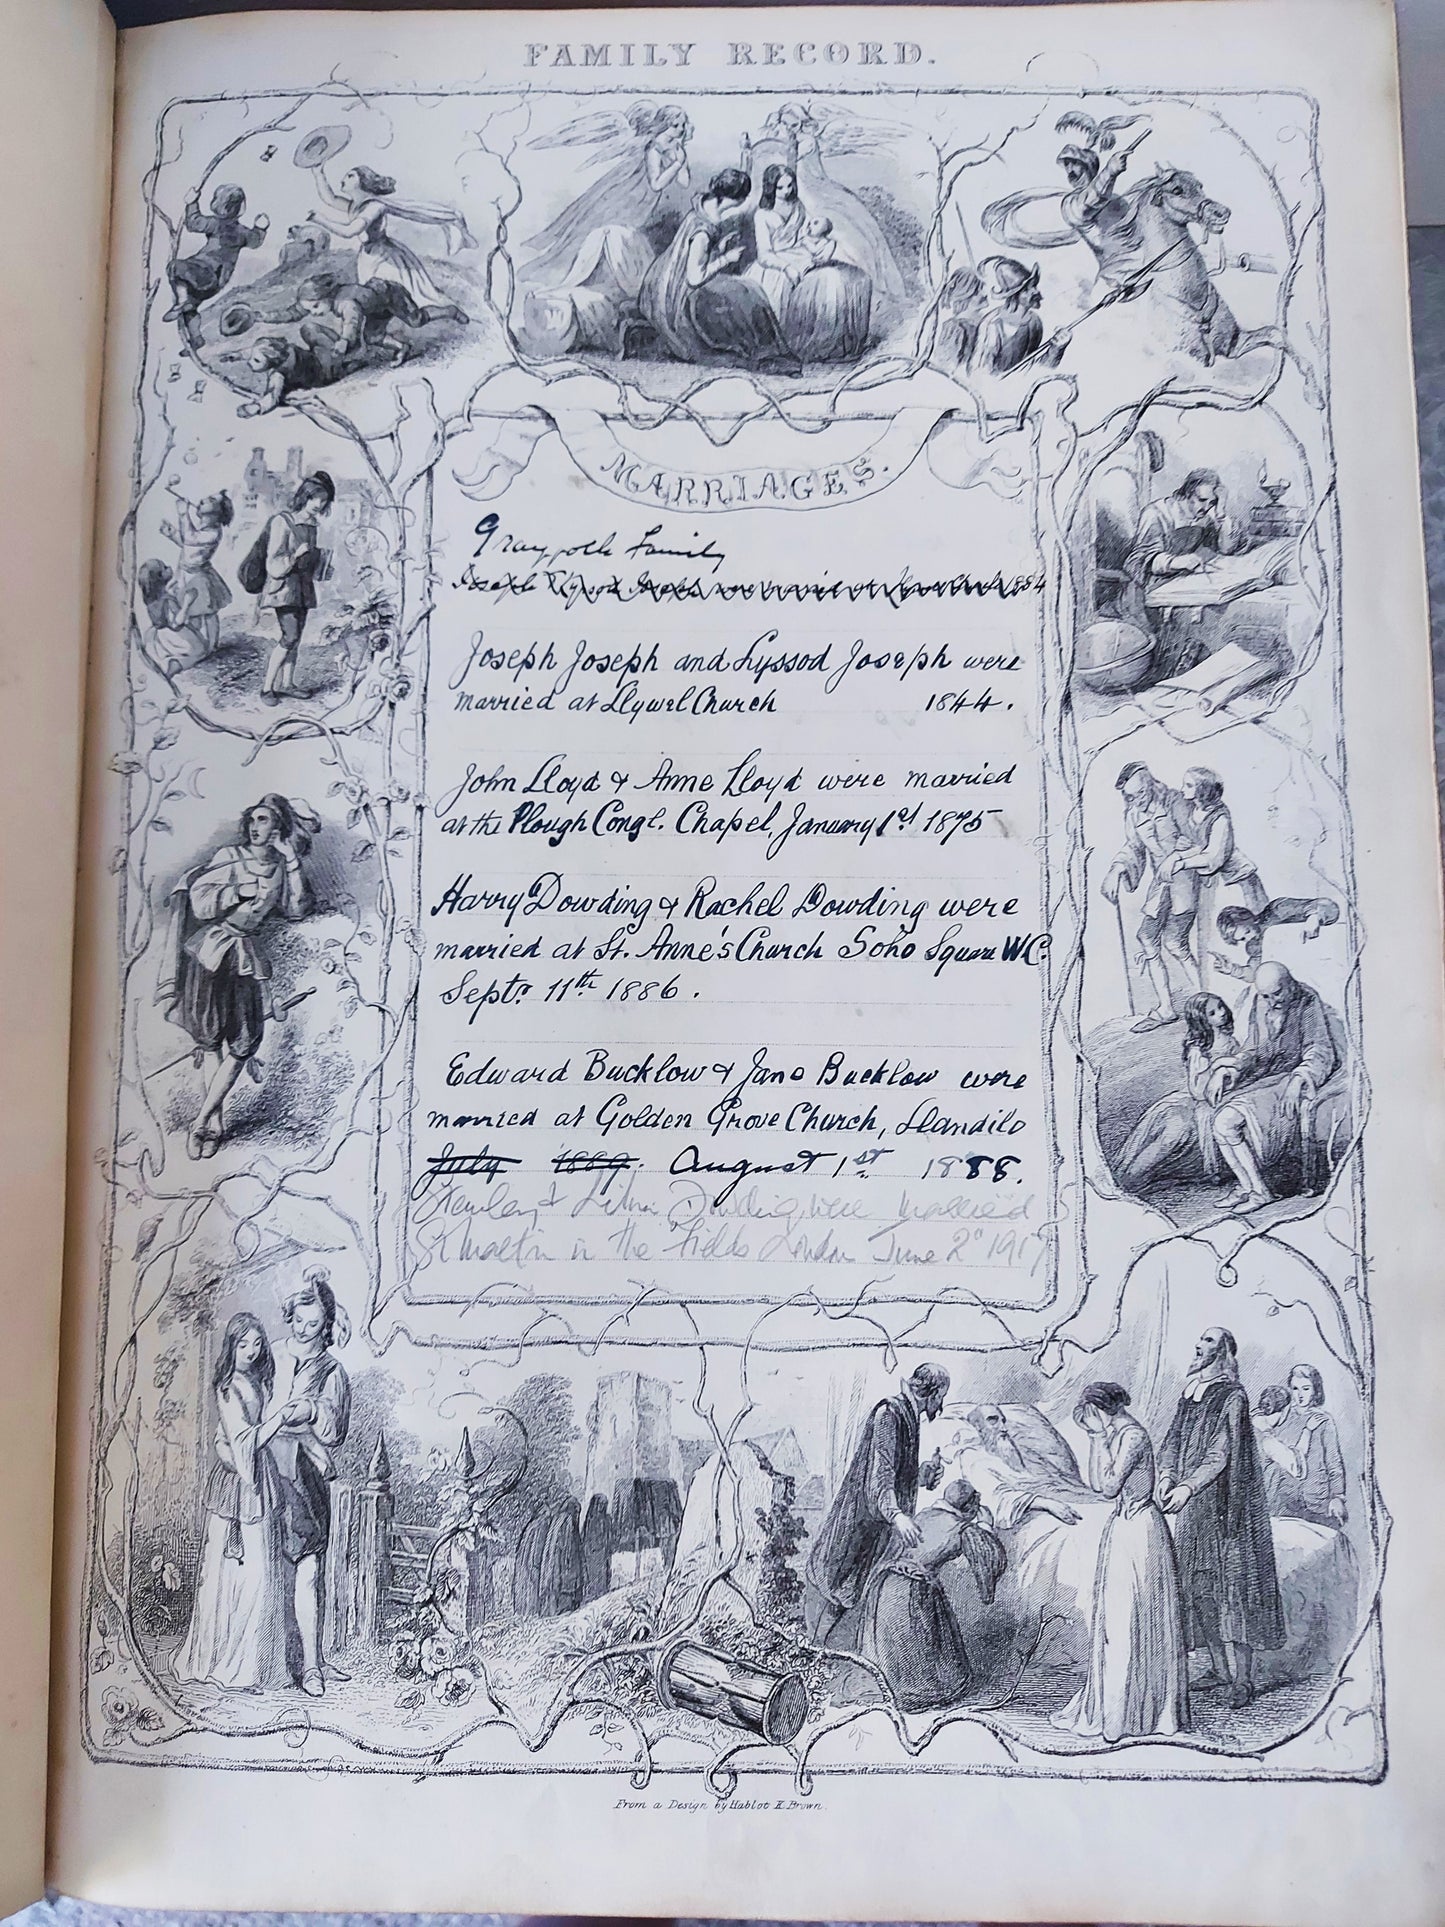 FAMILY RECORD.
MARRIAGES.
Family
Joseph 1884
Joseph Joseph and Lyssod Joseph were
married at Llywel Church 1844.
John Lloyd & Anne Lloyd were married
at the Plough Congl. Chapel, January 1st 1875
Harry Dowding & Rachel Dowding were
married at St. Anne's Church Soho Square W.C.
Septr 11th 1886.
Edward Bucklow & Jane Bucklow were
married at Golden Grove Church, Llandilo
July 1889. August 1st 1888.
Stanley & Dowding were married
St Martin in the Fields London June 2d 1917
From a Design by Hablot K. Brown.